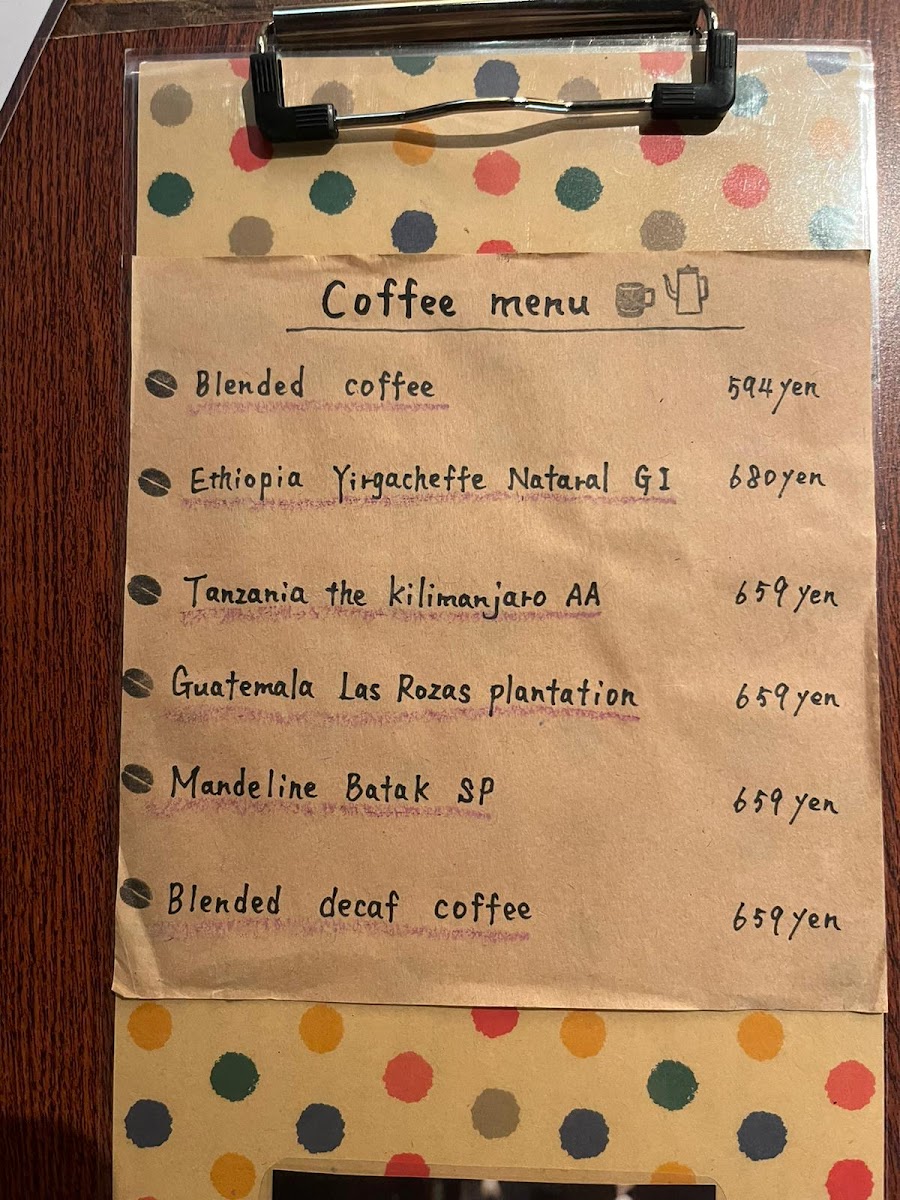 Coffee menu
Blended coffee 594yen
Ethiopia Yirgacheffe Nataral G1 680yen
Tanzania the kilimanjaro AA 659yen
Guatemala Las Rozas plantation 659yen
Mandeline Batak SP 659yen
Blended decaf coffee 659yen